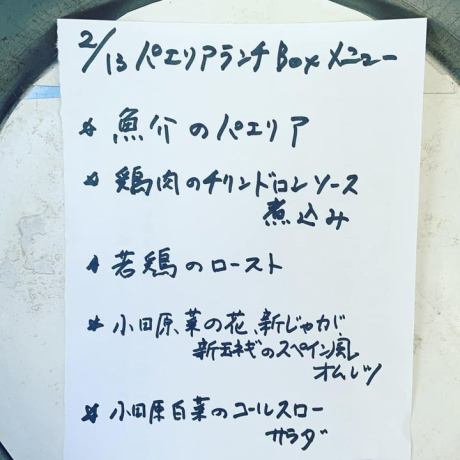 2/13 パエリアランチBoxメニュー
* 魚介のパエリア
* 鶏肉のチリンドロンソース
煮込み
* 若鶏のロースト
* 小田原、菜の花、新じゃが、
新玉ネギのスペイン風
オムレツ
* 小田原白菜のコールスロー
サラダ